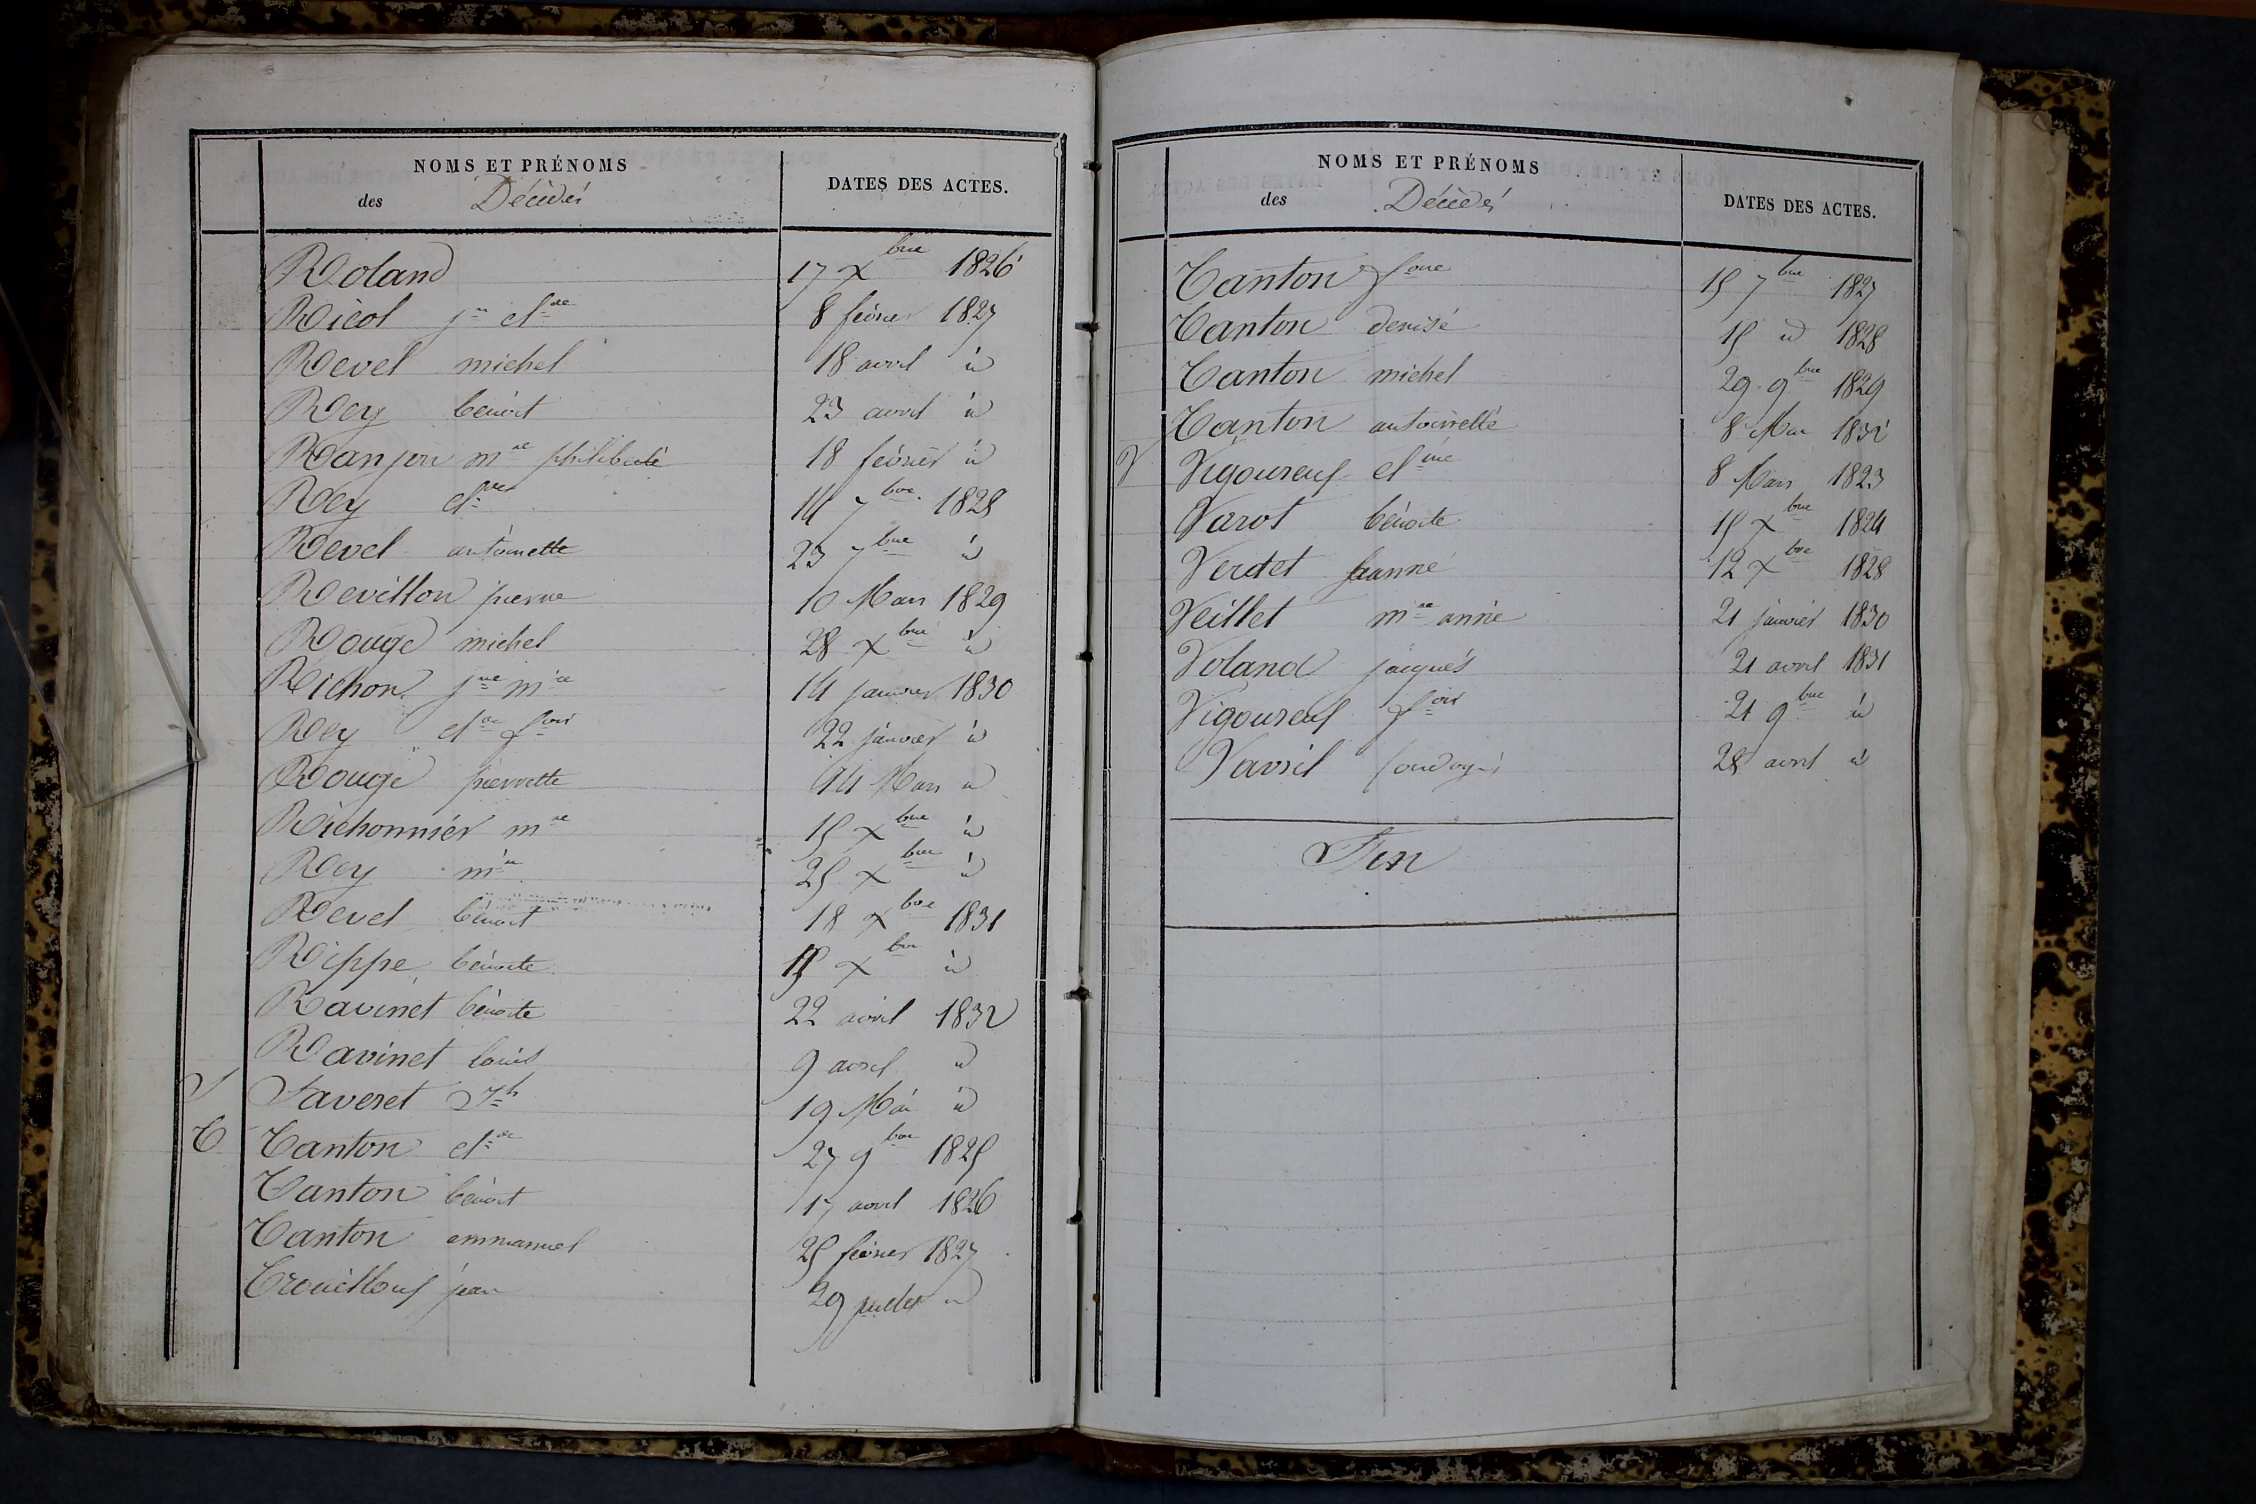 NOMS ET PRÉNOMS
des Décédés
DATES DES ACTES.
Roland 17 Xbre 1826
Ricol 8 février 1827
Revel michel 18 avril id
Rey benoit 23 avril id
Ranjon mie philiberte 18 février id
Rey 14 7bre 1828
Revel antoinette 23 7bre id
Revillon pierre 10 Mars 1829
Rouge michel 28 Xbre id
Richon jne mie 14 janvier 1830
Rey cl fois 22 janvier id
Rouge pierrette 14 Mars id
Richonnier mie 15 Xbre id
Rey mie 25 Xbre id
Revel benoit 18 Xbre 1831
Rippe benoite Xbre id
Ravinet benoite 22 avril 1832
Ravinet louis 9 avril id
S Saveret 19 Mai id
T Tanton 27 9bre 1825
Tanton benoit 17 avril 1826
Tanton emmanuel 25 février 1827
Trouilloux jean 29 juillet id
NOMS ET PRÉNOMS
des Décédés
DATES DES ACTES.
Tanton foise 15 7bre 1827
Tanton denise 15 id 1828
Tanton michel 29 9bre 1829
Tanton antoinette 8 Mai 1832
V Vigoureux 8 Mars 1823
Varot benoite 15 Xbre 1824
Verdet jeanne 12 Xbre 1828
Veillet mie anne 21 janvier 1830
Voland jacques 21 avril 1831
Vigoureux fois 21 9bre id
Vavril 28 avril id
Fin